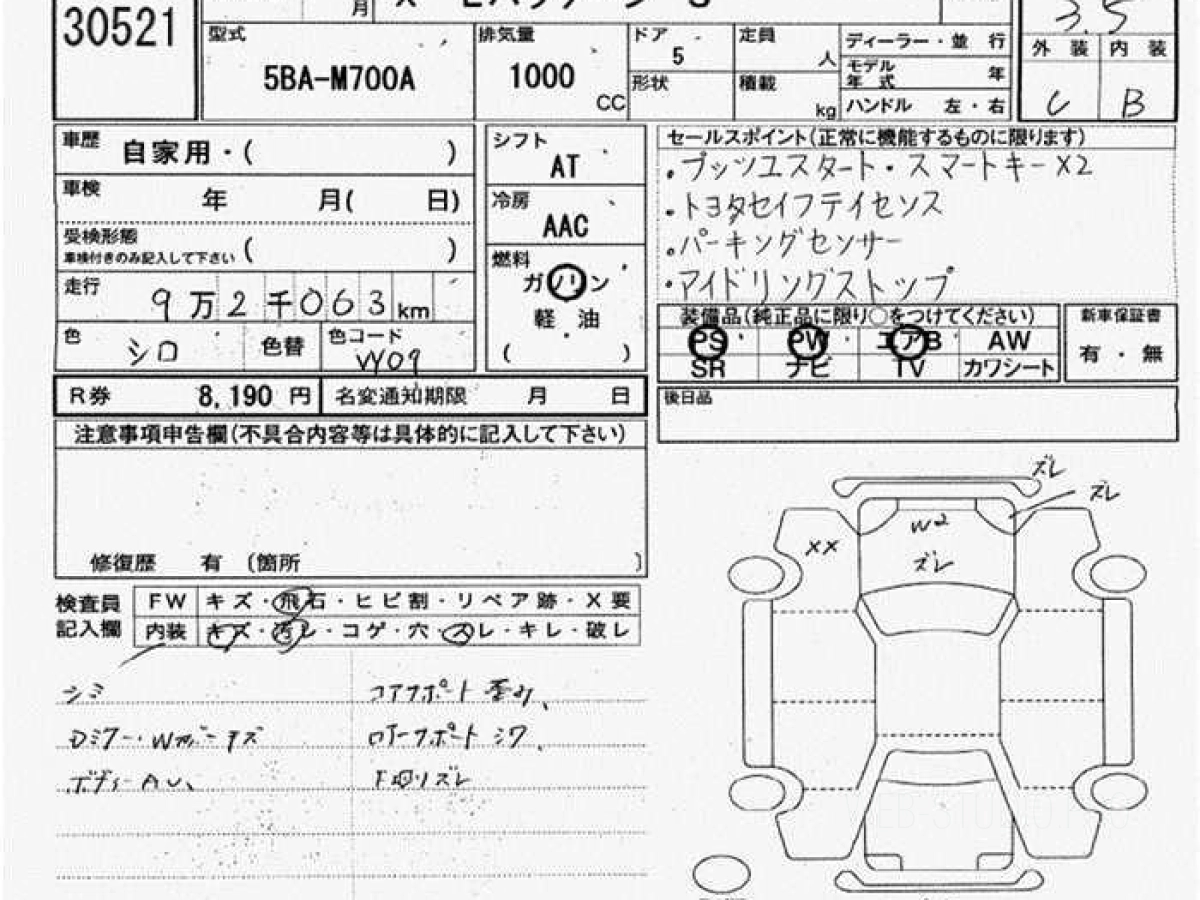 30521
月
X Lパッケージ S
3.5
型式
5BA-M700A
排気量
1000
CC
ドア
5
形状
定員
人
積載
kg
ディーラー・並 行
モデル
年 式
年
ハンドル 左・右
外 装
内 装
C
B
車歴
自家用・( )
車検
年 月( 日)
受検形態
車検付きのみ記入して下さい ( )
走行
9万2千063km
色
シロ
色替
色コード
W09
シフト
AT
冷房
AAC
燃料
ガソリン
軽 油
( )
セールスポイント(正常に機能するものに限ります)
・プッシュスタート・スマートキーX2
・トヨタセイフティセンス
・パーキングセンサー
・アイドリングストップ
装備品(純正品に限り○をつけてください)
PS PW エアB AW
SR ナビ TV カワシート
新車保証書
有 ・ 無
R券
8,190 円
名変通知期限 月 日
後日品
注意事項申告欄(不具合内容等は具体的に記入して下さい)
修復歴 有 〔箇所 〕
検査員
記入欄
FW
キズ・飛石・ヒビ割・リペア跡・X要
内装
キズ・汚レ・コゲ・穴・スレ・キレ・破レ
シミ
コアサポート 歪み、
Dミラー・Wカバーキズ
ロアーサポート シワ、
ボディーAU、
下回リズレ
ズレ
ズレ
W2
XX
ズレ